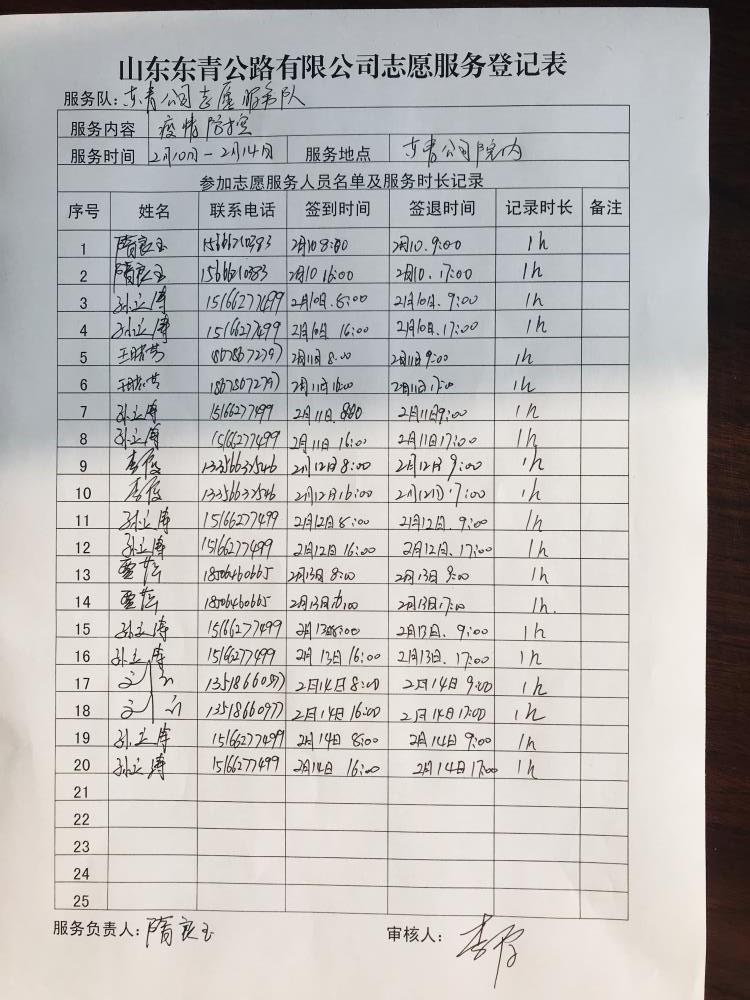 山东东青公路有限公司志愿服务登记表
服务队: 东青公司志愿服务队
服务内容 疫情防控
服务时间 2月10日-2月14日 服务地点 东青公司院内
参加志愿服务人员名单及服务时长记录
序号 姓名 联系电话 签到时间 签退时间 记录时长 备注
1 隋良玉 2月10 8:00 2月10. 9:00 1h
2 隋良玉 2月10 16:00 2月10. 17:00 1h
3 孙立涛 15166277499 2月10日. 8:00 2月10日. 9:00 1h
4 孙立涛 15166277499 2月10日 16:00 2月10日. 17:00 1h
5 2月11日 8:00 2月11日 9:00 1h
6 2月11日 16:00 2月11日 17:00 1h
7 孙立涛 15166277499 2月11日. 8:00 2月11日 9:00 1h
8 孙立涛 15166277499 2月11日 16:00 2月11日 17:00 1h
9 李俊 2月12日 8:00 2月12日 9:00 1h
10 李俊 2月12日 16:00 2月12日 17:00 1h
11 孙立涛 15166277499 2月12日 8:00 2月12日. 9:00 1h
12 孙立涛 15166277499 2月12日 16:00 2月12日. 17:00 1h
13 2月13日 8:00 2月13日 9:00 1h
14 2月13日 2月13日 17:00 1h.
15 孙立涛 15166277499 2月13日 8:00 2月13日. 9:00 1h
16 孙立涛 15166277499 2月13日 16:00 2月13日. 17:00 1h
17 13518660977 2月14日 8:00 2月14日 9:00 1h
18 13518660977 2月14日 16:00 2月14日 17:00 1h
19 孙立涛 15166277499 2月14日 8:00 2月14日 9:00 1h
20 孙立涛 15166277499 2月14日 16:00 2月14日 17:00 1h
21
22
23
24
25
服务负责人: 隋良玉 审核人: 李俊